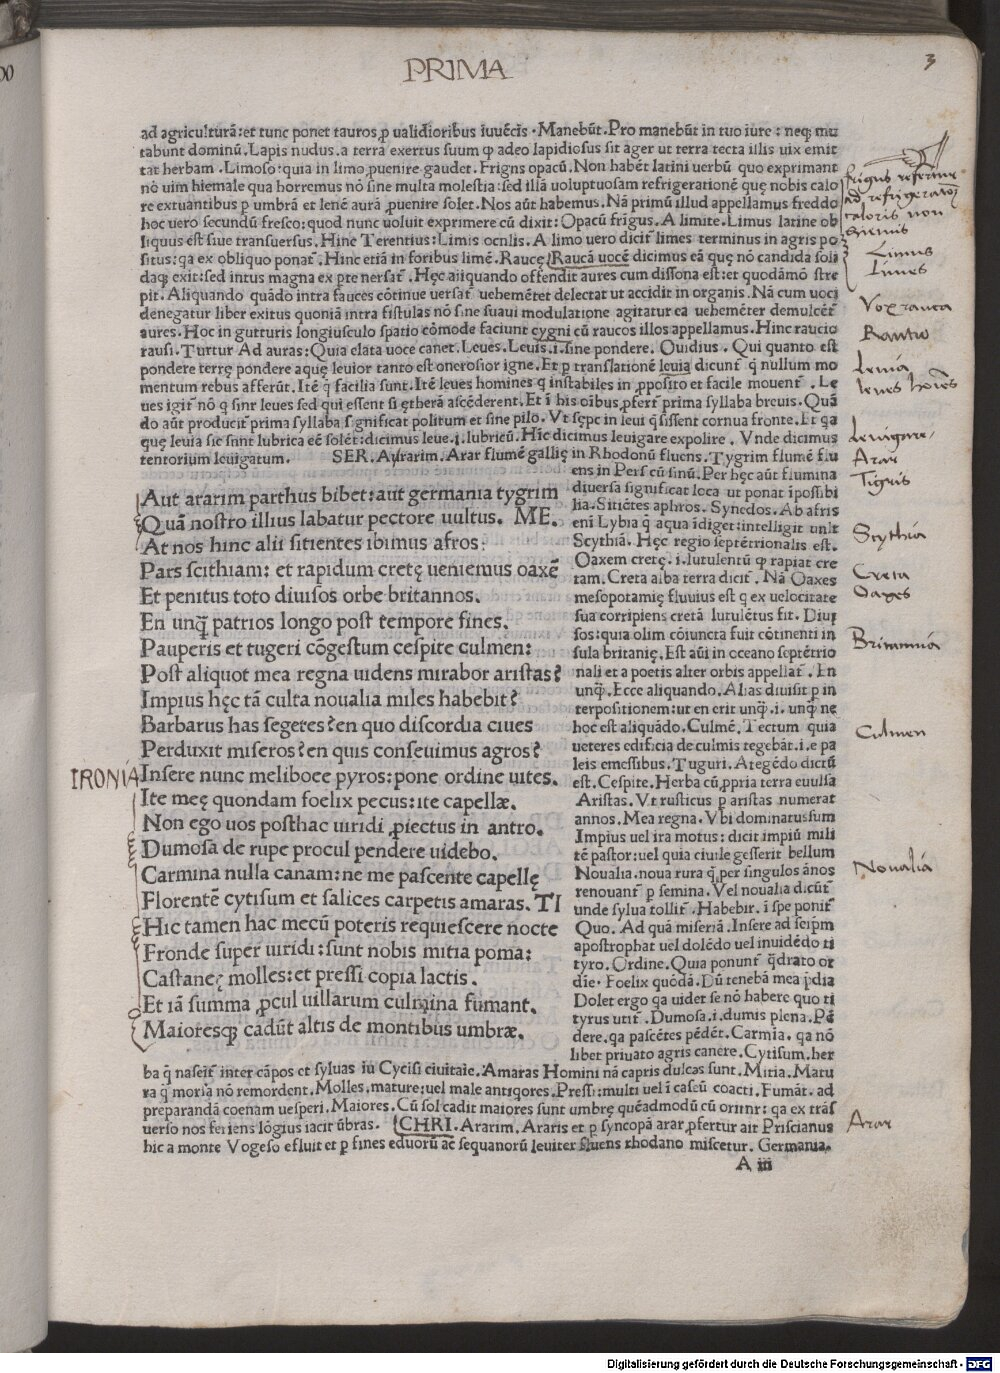 PRIMA
3
ad agriculturā: et tunc ponet tauros ꝓ ualidioribus iuuēcis. Manebūt. Pro manebūt in tuo iure: neqꝫ mu
tabunt dominū. Lapis nudus. a terra exertus suum ꝙ adeo lapidiosus sit ager ut terra tecta illis uix emit
tat herbam. Limoso: quia in limo ꝓuenire gaudet. Frigns opacū. Non habēt latini uerbū quo exprimant
nō uim hiemale qua horremus nō sine multa molestia: sed illā uoluptuosam refrigerationē quę nobis calo
re extuantibus ꝑ umbrā et lenē aurā ꝓuenire solet. Nos aūt habemus. Nā primū illud appellamus freddo
hoc uero secundū fresco: quod nunc uoluit exprimere cū dixit: Opacū frigus. A limite. Limus latine ob
liquus est siue transuersus. Hinc Terentius: Limis ocnlis. A limo uero dicit̃ limes terminus in agris po
situs: qa ex obliquo ponat̃. Hinc etiā in foribus limē. Raucę. Raucā uocē dicimus eā quę nō candida solā
daqꝫ exit: sed intus magna ex pte nersat̃. Hęc aiiquando offendit aures cum dissona est: et quodāmō stre
pit. Aliquando quādo intra fauces cōtinue uersat̃ uehemēter delectat ut accidit in organis. Nā cum uoci
denegatur liber exitus quoniā intra fistulas nō sine suaui modulatione agitatur ea uehemēter demulcēt
aures. Hoc in gutturis longiusculo spatio cōmode faciunt cygni cū raucos illos appellamus. Hinc raucio
rausi. Turtur Ad auras: Quia elata uoce canet. Leues. Leuis .i. sine pondere. Ouidius. Qui quanto est
pondere terrę pondere aquę leuior tanto est onerosior igne. Et ꝑ translationē leuia dicunt̃ q̄ nullum mo
mentum rebus afferūt. Itē q̄ facilia sunt. Itē leues homines q instabiles in ꝓposito et facile mouent̃. Le
ues igit̃ nō q sint leues sed qui essent si ętherā ascēderent. Et ī his oībus ꝓfert̃ prima syllaba breuis. Quā
do aūt producit̃ prima syllaba significat politum et sine pilo. Vt sępe in leui q̄sissent cornua fronte. Et qa
quę leuia sic sint lubrica eē solēt: dicimus leue .i. lubricū. Hic dicimus leuigare expolire. Vnde dicimus
tentorium leuigatum. SER. Aut ararim. Arar flumē gallię in Rhodonū fluens. Tygrim flumē flu
Aut ararim parthus bibet: aut germania tygrim
Quā nostro illius labatur pectore uultus. ME.
At nos hinc alii sitientes ibimus afros:
Pars scithiam: et rapidum cretę ueniemus oaxē
Et penitus toto diuisos orbe britannos.
En unq̄ patrios longo post tempore fines.
Pauperis et tugeri cōgestum cespite culmen:
Post aliquot mea regna uidens mirabor aristas?
Impius hęc tā culta noualia miles habebit?
Barbarus has segetes? en quo discordia ciues
Perduxit miseros? en quis conseuimus agros?
IRONIA
Insere nunc meliboee pyros: pone ordine uites.
Ite meę quondam foelix pecus: ite capellæ.
Non ego uos posthac uiridi ꝓiectus in antro.
Dumosa de rupe procul pendere uidebo.
Carmina nulla canam: ne me pascente capellę
Florentē cytisum et salices carpetis amaras. TI
Hic tamen hac mecū poteris requiescere nocte
Fronde super uiridi: sunt nobis mitia poma:
Castaneę molles: et pressi copia lactis.
Et iā summa ꝓcul uillarum culmina fumant.
Maioresqꝫ cadūt altis de montibus umbræ.
ens in Persicū sinū. Per hęc aūt flumina
diuersa significat loca ut ponat īpossibi
lia. Sitiētes aphros. Synedos. Ab afris
eni Lybia q̄ aqua īdiget: intelligit unīt
Scythiā. Hęc regio septētrionalis est.
Oaxem cretę .i. lutulentū ꝙ rapiat cre
tam. Creta alba terra dicit̃. Nā Oaxes
mesopotamię fluuius est q ex uelocitate
sua corripiens cretā lutulētus fit. Diui
sos: quia olim cōiuncta fuit cōtinenti in
sula britanię. Est aūi in oceano septētrio
nali et a poetis alter orbis appellat̃. En
unq̄. Ecce aliquando. Alias diuisit ꝑ in
terpositionem: ut en erit unq̄ .i. unq̄ ne
hoc est aliquādo. Culmē. Tectum quia
ueteres edificia de culmis tegebāt .i. e pa
leis emessibus. Tuguri. A tegēdo dictū
est. Cespite. Herba cū ꝓpria terra euulsa
Aristas. Vt rusticus ꝑ aristas numerat
annos. Mea regna. Vbi dominatus sum
Impius uel ira motus: dicit impiū mili
tē pastor: uel quia ciuile gesserit bellum
Noualia. noua rura q̄ ꝑ singulos ānos
renouant̃ ꝑ semina. Vel noualia dicūt̃
unde sylua tollit̃. Habebit. ī spe ponit̃
Quo. Ad quā miseriā. Insere ad seipm̄
apostrophat uel dolēdo uel inuidēdo ti
tyro. Ordine. Quia ponunt̃ q̄drato or
die. Foelix quōdā. Dū tenebā mea p̄dia
Dolet ergo qa uider se nō habere quo ti
tyrus utit̃. Dumosa .i. dumis plena. Pē
dere. qa pascētes pēdēt. Carmīa. qa nō
libet priuato agris canere. Cytisum. her
ba q̄ nascit̃ inter cāpos et syluas iu Cycisi ciuitate. Amaras Homini nā capris dulces sunt. Mitia. Matu
ra q̄ morsa nō remordent. Molles. mature: uel male antiqores. Pressi: multi uel ī caseū coacti. Fumāt. ad
preparandā coenam uesperi. Maiores. Cū sol cadit maiores sunt umbrę quēadmodū cū orinr: qa ex trās
uerso nos feriens lōgius iacit ūbras. CHRI. Ararim. Araris et ꝑ syncopā arar ꝓfertur ait Priscianus
hic a monte Vogeso efluit et ꝑ fines eduorū ac sequanorū leuiter fluens rhodano miscetur. Germania.
A iii
frigus refertur
ad refrigeratoꝫ
caloris non
Limus
Limes
Vox rauca
Rautio
Leuia
leues hoīes
Leuigare
Arar
Tigris
Scythiā
Creta
Oaxes
Britanniā
Culmen
Noualiā
Arar
Digitalisierung gefördert durch die Deutsche Forschungsgemeinschaft - DFG